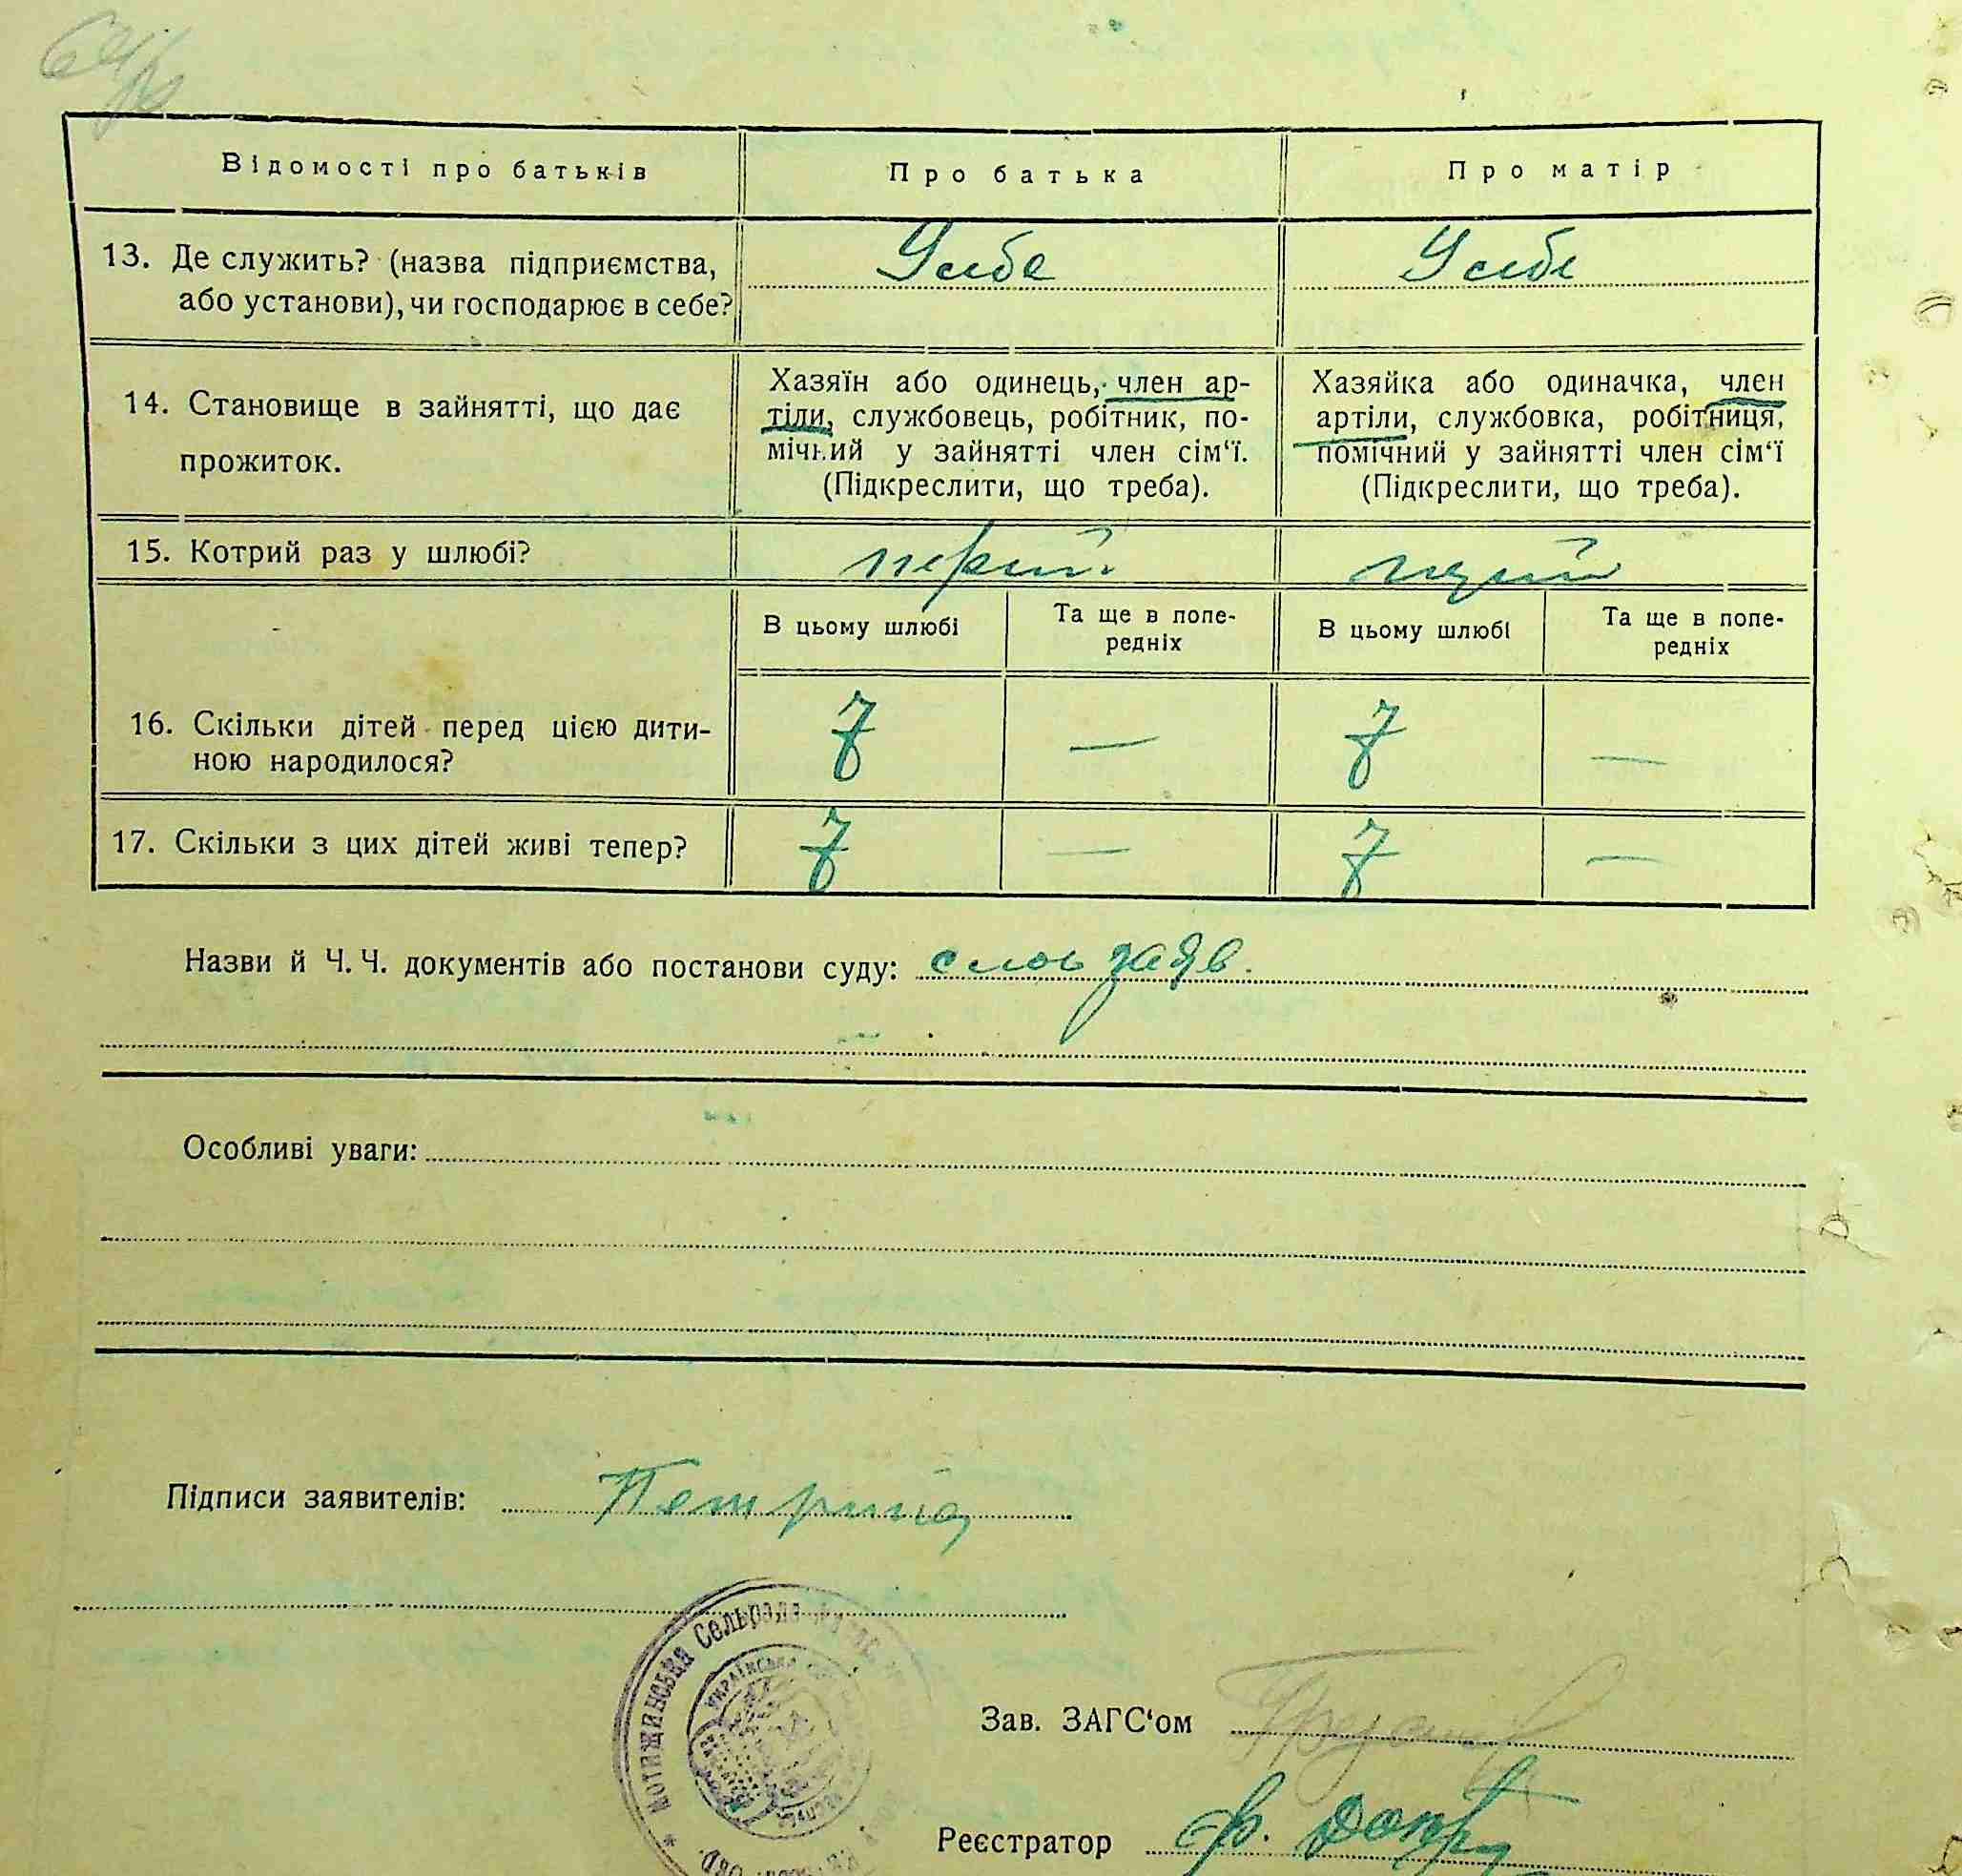 Відомості про батьків
Про батька
Про матір
13. Де служить? (назва підприємства,
або установи), чи господарює в себе?
У себе
У себе
14. Становище в зайнятті, що дає
прожиток.
Хазяїн або одинець, член ар-
тіли, службовець, робітник, по-
мічний у зайнятті член сім‘ї.
(Підкреслити, що треба).
Хазяйка або одиначка, член
артіли, службовка, робітниця,
помічний у зайнятті член сім‘ї
(Підкреслити, що треба).
15. Котрий раз у шлюбі?
В цьому шлюбі
Та ще в попе-
редніх
В цьому шлюбі
Та ще в попе-
редніх
16. Скільки дітей перед цією дити-
ною народилося?
7 — 7 —
17. Скільки з цих дітей живі тепер?
7 — 7 —
Назви й Ч. Ч. документів або постанови суду: слов заяв.
Особливі уваги:
Підписи заявителів:
Мотижинська Сельрада
УКРАЇНСЬКА
Зав. ЗАГС‘ом
Реєстратор